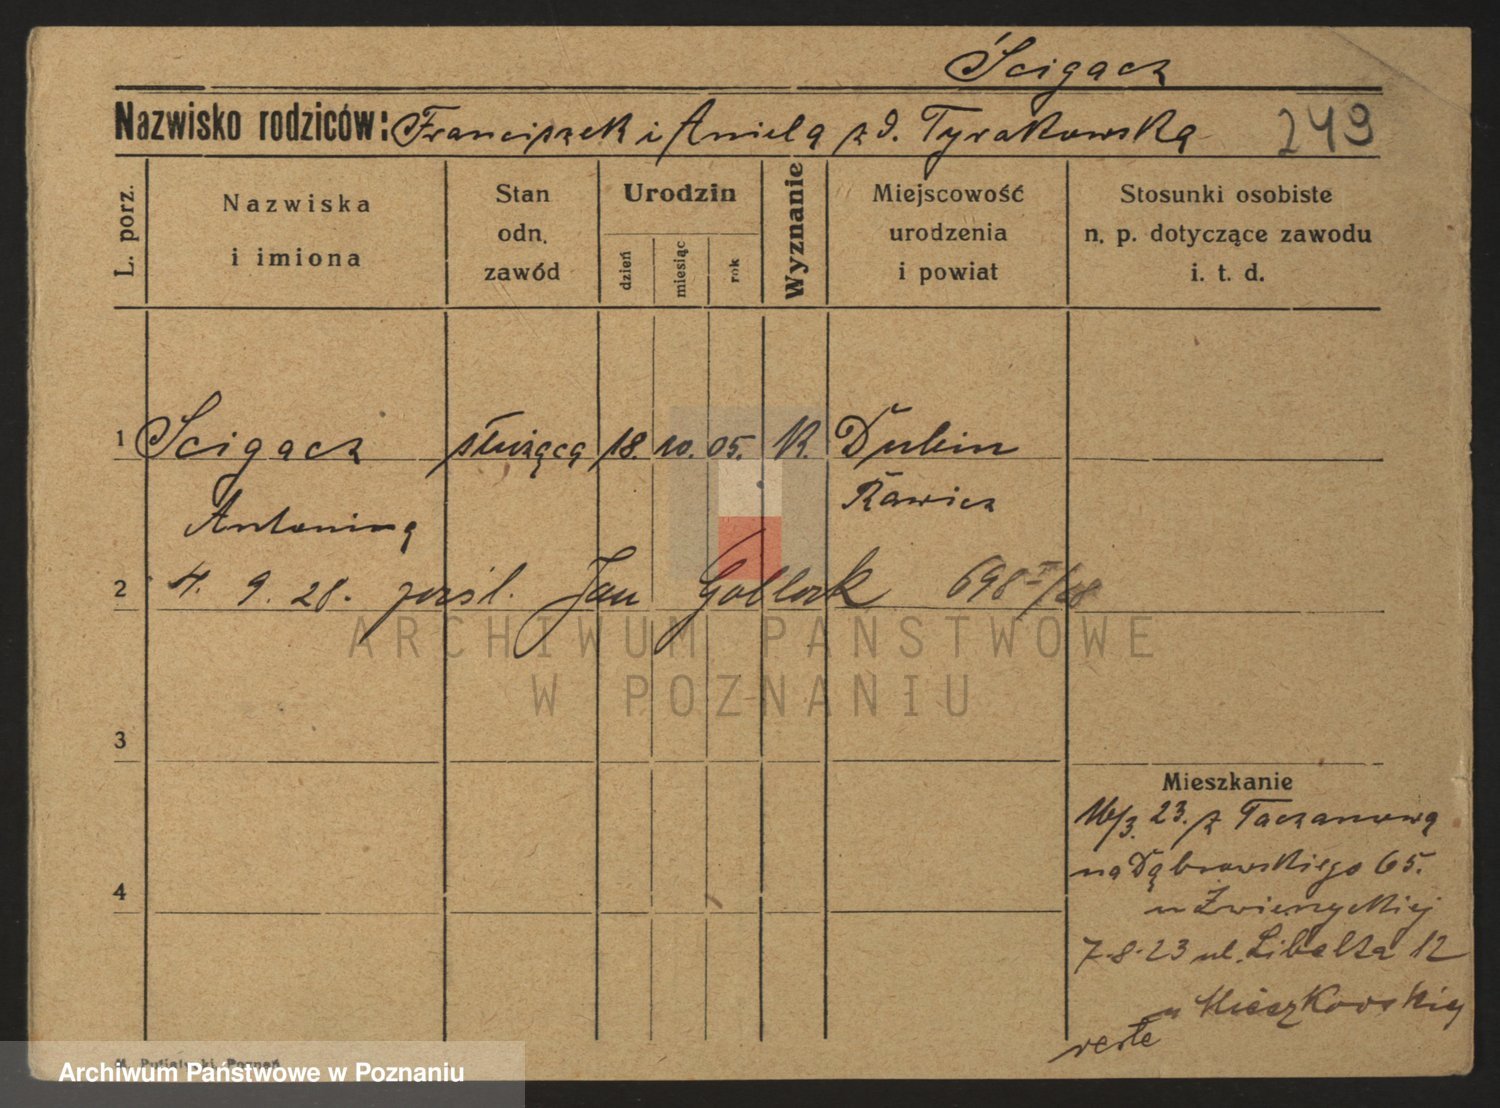 Ścigacz
Nazwisko rodziców: Franciszek i Aniela z d. Tyrakowska
249
L. porz.
Nazwiska
i imiona
Stan
odn.
zawód
Urodzin
dzień
miesiąc
rok
Wyznanie
Miejscowość
urodzenia
i powiat
Stosunki osobiste
n. p. dotyczące zawodu
i. t. d.
1 Scigacz służąca 18. 10. 05. K. Dubin
Antonina Rawicz
2 4. 9. 28. pośl. Jan 698
ARCHIWUM PAŃSTWOWE
W POZNANIU
3
Mieszkanie
16/3. 23. z Taczanowa
4 na Dąbrowskiego 65.
u Zwierzyckiej
7.8.23 ul. Libelta 12
u Mieczkowskiej
Poznań
Archiwum Państwowe w Poznaniu